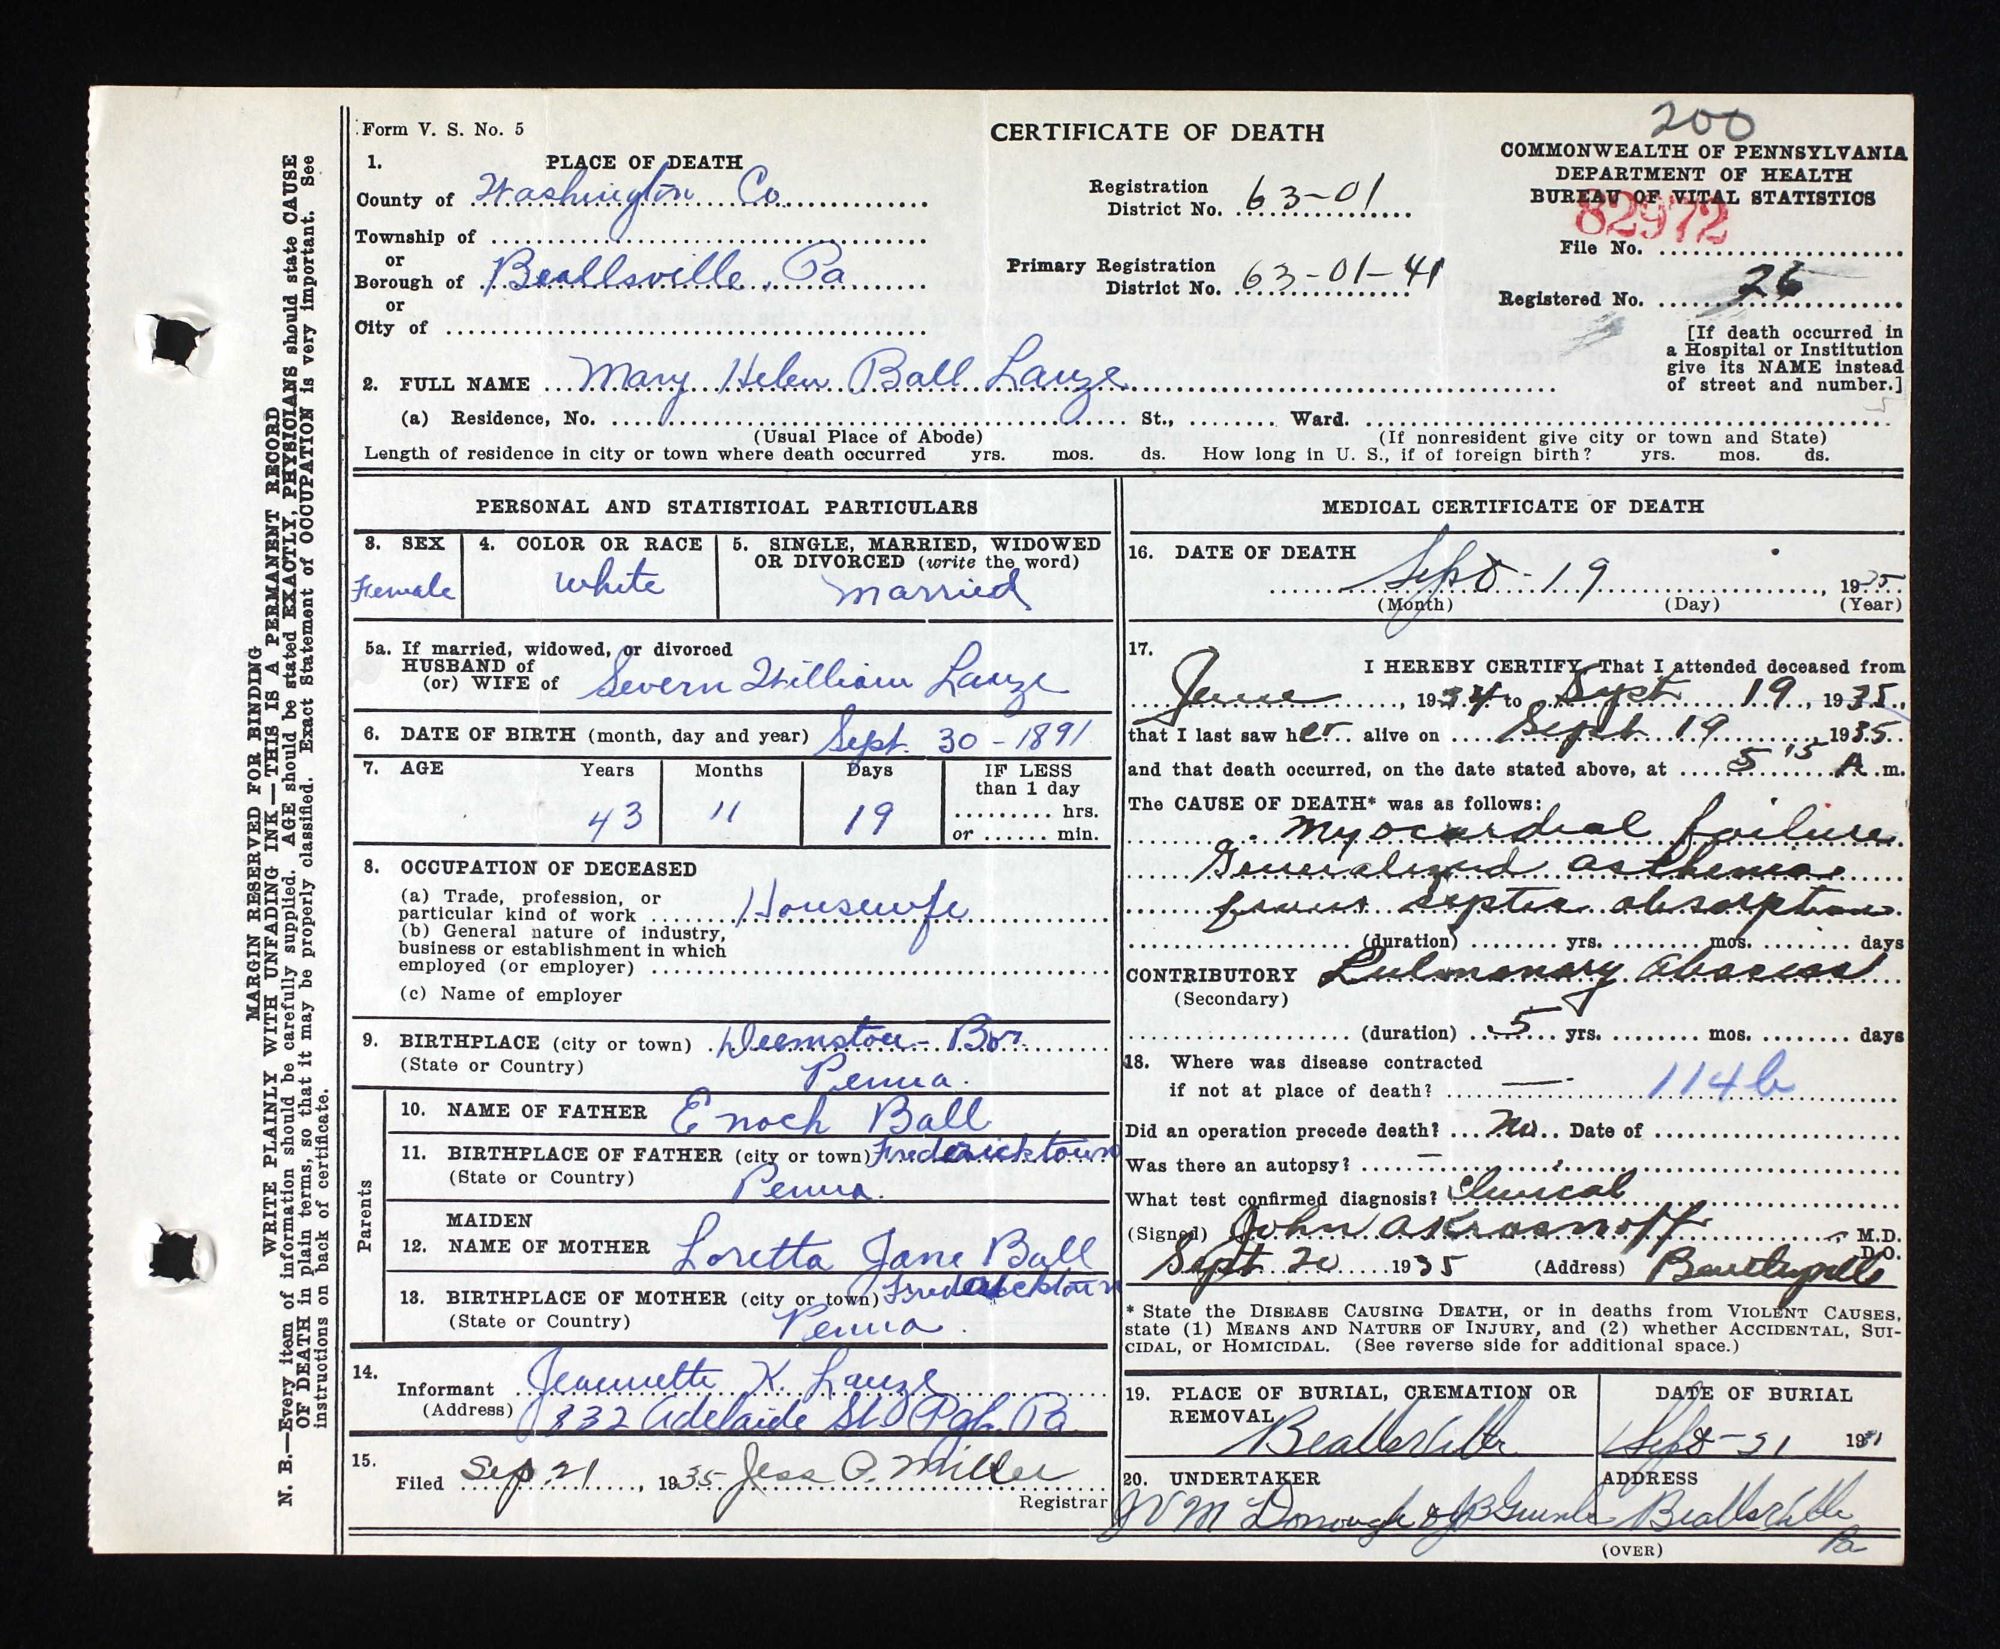 200
Form V. S. No. 5
CERTIFICATE OF DEATH
COMMONWEALTH OF PENNSYLVANIA
DEPARTMENT OF HEALTH
BUREAU OF VITAL STATISTICS
1. PLACE OF DEATH
County of Washington Co.
Registration District No. 63-01
82972
File No.
Township of
or
Borough of Beallsville, Pa
Primary Registration District No. 63-01-41
Registered No. 26
or
City of
[If death occurred in
a Hospital or Institution
give its NAME instead
of street and number.]
2. FULL NAME Mary Helen Ball Lauze
(a) Residence, No. St., Ward.
(Usual Place of Abode) (If nonresident give city or town and State)
Length of residence in city or town where death occurred yrs. mos. ds. How long in U. S., if of foreign birth? yrs. mos. ds.
PERSONAL AND STATISTICAL PARTICULARS
3. SEX
Female
4. COLOR OR RACE
White
5. SINGLE, MARRIED, WIDOWED
OR DIVORCED (write the word)
Married
5a. If married, widowed, or divorced
HUSBAND of
(or) WIFE of Severn William Lauze
6. DATE OF BIRTH (month, day and year) Sept. 30-1891
7. AGE Years Months Days IF LESS
than 1 day
43 11 19 hrs.
or min.
8. OCCUPATION OF DECEASED
(a) Trade, profession, or
particular kind of work Housewife
(b) General nature of industry,
business or establishment in which
employed (or employer)
(c) Name of employer
9. BIRTHPLACE (city or town) Deemston-Bor.
(State or Country) Penna.
Parents
10. NAME OF FATHER Enoch Ball
11. BIRTHPLACE OF FATHER (city or town) Fredericktown
(State or Country) Penna.
MAIDEN
12. NAME OF MOTHER Loretta Jane Ball
13. BIRTHPLACE OF MOTHER (city or town) Fredericktown
(State or Country) Penna.
14.
Informant Jeannette K. Lauze
(Address) 832 Adelaide St Pgh. Pa
15.
Filed Sep. 21, 1935 Jess P. Miller
Registrar
MEDICAL CERTIFICATE OF DEATH
16. DATE OF DEATH
Sept-19, 1935
(Month) (Day) (Year)
17.
I HEREBY CERTIFY, That I attended deceased from
June, 1934 to Sept 19, 1935,
that I last saw her alive on Sept 19 1935
and that death occurred, on the date stated above, at 5 15 A.m.
The CAUSE OF DEATH* was as follows:
Myocardial failure
Generalized asthenia
from septic absorption
(duration) yrs. mos. days
CONTRIBUTORY Pulmonary abscess
(Secondary)
(duration) 5 yrs. mos. days
18. Where was disease contracted
if not at place of death? — 114b
Did an operation precede death? No Date of
Was there an autopsy? –
What test confirmed diagnosis? Clinical
(Signed) John A Krasnoff, M.D.
D.O.
Sept 20 1935 (Address)
* State the DISEASE CAUSING DEATH, or in deaths from VIOLENT CAUSES,
state (1) MEANS AND NATURE OF INJURY, and (2) whether ACCIDENTAL, SUI-
CIDAL, or HOMICIDAL. (See reverse side for additional space.)
19. PLACE OF BURIAL, CREMATION OR
REMOVAL
Beallsville
DATE OF BURIAL
Sept-21 19
20. UNDERTAKER
ADDRESS
Beallsville
Pa
(OVER)
MARGIN RESERVED FOR BINDING
WRITE PLAINLY WITH UNFADING INK—THIS IS A PERMANENT RECORD
N. B.—Every item of information should be carefully supplied. AGE should be stated EXACTLY, PHYSICIANS should state CAUSE
OF DEATH in plain terms, so that it may be properly classified. Exact Statement of OCCUPATION is very important. See
instructions on back of certificate.